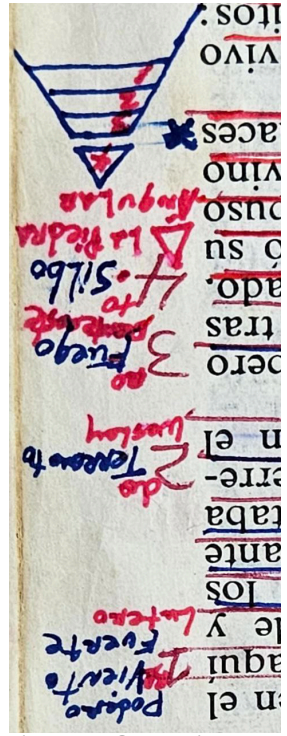 en el
aquí
le y
los
ante
taba
erre-
n el
pero
tras
ado.
ó su
puso
vino
aces
vivo
itos:
Poderoso
1ro Viento
Fuerte
Lutero
2do Terremoto
Wesley
3ro Fuego
pentecoste
4to Silbo
La Piedra
Angular